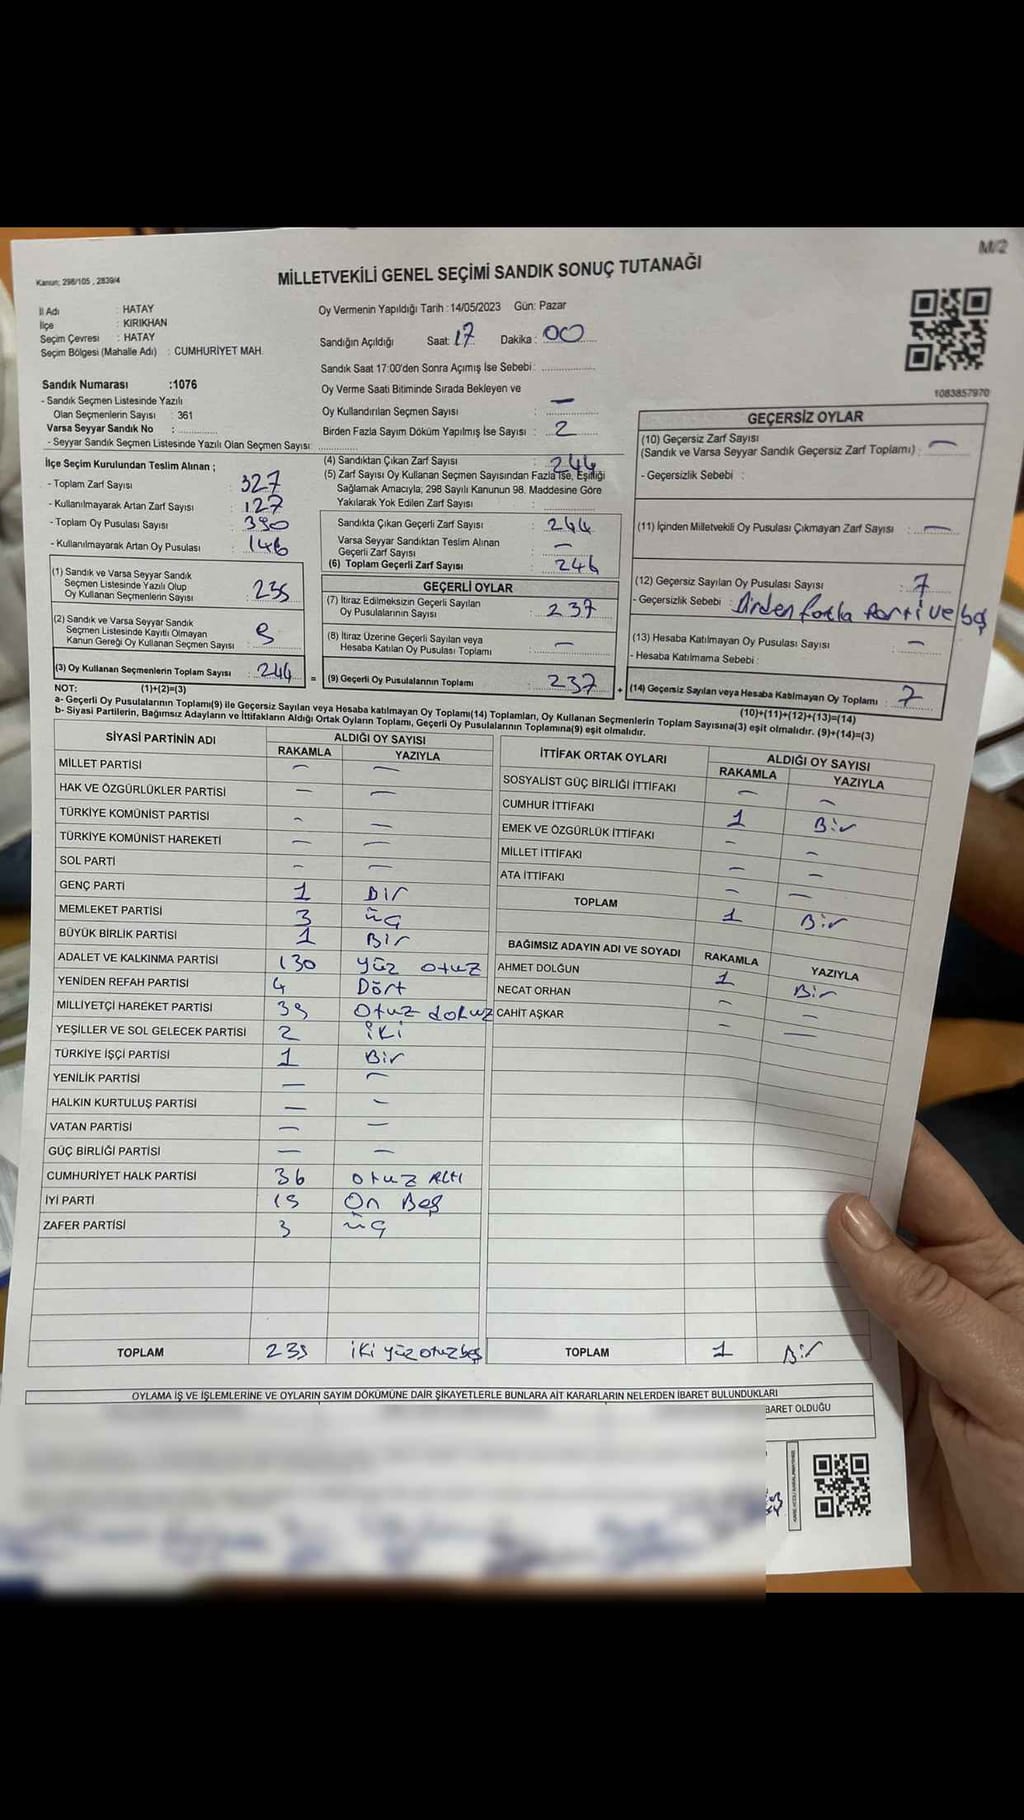 M/2
Kanun: 298/105 , 2839/4
MİLLETVEKİLİ GENEL SEÇİMİ SANDIK SONUÇ TUTANAĞI
İl Adı : HATAY
İlçe : KIRIKHAN
Seçim Çevresi : HATAY
Seçim Bölgesi (Mahalle Adı) : CUMHURİYET MAH.
Sandık Numarası :1076
- Sandık Seçmen Listesinde Yazılı
Olan Seçmenlerin Sayısı : 361
Varsa Seyyar Sandık No :
- Seyyar Sandık Seçmen Listesinde Yazılı Olan Seçmen Sayısı:
Oy Vermenin Yapıldığı Tarih : 14/05/2023 Gün: Pazar
Sandığın Açıldığı Saat: 17 Dakika : 00
Sandık Saat 17:00'den Sonra Açımış İse Sebebi:
Oy Verme Saati Bitiminde Sırada Bekleyen ve
Oy Kullandırılan Seçmen Sayısı : —
Birden Fazla Sayım Döküm Yapılmış İse Sayısı : 2
1083857970
İlçe Seçim Kurulundan Teslim Alınan ;
- Toplam Zarf Sayısı : 327
- Kullanılmayarak Artan Zarf Sayısı : 127
- Toplam Oy Pusulası Sayısı : 390
- Kullanılmayarak Artan Oy Pusulası : 146
(1) Sandık ve Varsa Seyyar Sandık
Seçmen Listesinde Yazılı Olup
Oy Kullanan Seçmenlerin Sayısı : 235
(2) Sandık ve Varsa Seyyar Sandık
Seçmen Listesinde Kayıtlı Olmayan
Kanun Gereği Oy Kullanan Seçmen Sayısı : 9
(3) Oy Kullanan Seçmenlerin Toplam Sayısı : 244
(4) Sandıktan Çıkan Zarf Sayısı : 244
(5) Zarf Sayısı Oy Kullanan Seçmen Sayısından Fazla İse, Eşitliği
Sağlamak Amacıyla; 298 Sayılı Kanunun 98. Maddesine Göre
Yakılarak Yok Edilen Zarf Sayısı :
Sandıkta Çıkan Geçerli Zarf Sayısı : 244
Varsa Seyyar Sandıktan Teslim Alınan
Geçerli Zarf Sayısı : —
(6) Toplam Geçerli Zarf Sayısı : 244
GEÇERLİ OYLAR
(7) İtiraz Edilmeksizin Geçerli Sayılan
Oy Pusulalarının Sayısı : 237
(8) İtiraz Üzerine Geçerli Sayılan veya
Hesaba Katılan Oy Pusulası Toplamı : —
= (9) Geçerli Oy Pusulalarının Toplamı : 237 +
GEÇERSİZ OYLAR
(10) Geçersiz Zarf Sayısı
(Sandık ve Varsa Seyyar Sandık Geçersiz Zarf Toplamı) : —
- Geçersizlik Sebebi :
(11) İçinden Milletvekili Oy Pusulası Çıkmayan Zarf Sayısı : —
(12) Geçersiz Sayılan Oy Pusulası Sayısı : 7
- Geçersizlik Sebebi : Birden fazla Parti ve boş
(13) Hesaba Katılmayan Oy Pusulası Sayısı : —
- Hesaba Katılmama Sebebi :
(14) Geçersiz Sayılan veya Hesaba Katılmayan Oy Toplamı : 7
NOT: (1)+(2)=(3)
(10)+(11)+(12)+(13)=(14)
a- Geçerli Oy Pusulalarının Toplamı(9) ile Geçersiz Sayılan veya Hesaba katılmayan Oy Toplamı(14) Toplamları, Oy Kullanan Seçmenlerin Toplam Sayısına(3) eşit olmalıdır. (9)+(14)=(3)
b- Siyasi Partilerin, Bağımsız Adayların ve İttifakların Aldığı Ortak Oyların Toplamı, Geçerli Oy Pusulalarının Toplamına(9) eşit olmalıdır.
SİYASİ PARTİNİN ADI ALDIĞI OY SAYISI
RAKAMLA YAZIYLA
MİLLET PARTİSİ — —
HAK VE ÖZGÜRLÜKLER PARTİSİ — —
TÜRKİYE KOMÜNİST PARTİSİ — —
TÜRKİYE KOMÜNİST HAREKETİ — —
SOL PARTİ — —
GENÇ PARTİ 1 Bir
MEMLEKET PARTİSİ 3 üç
BÜYÜK BİRLİK PARTİSİ 1 Bir
ADALET VE KALKINMA PARTİSİ 130 yüz otuz
YENİDEN REFAH PARTİSİ 4 Dört
MİLLİYETÇİ HAREKET PARTİSİ 39 Otuz dokuz
YEŞİLLER VE SOL GELECEK PARTİSİ 2 iki
TÜRKİYE İŞÇİ PARTİSİ 1 Bir
YENİLİK PARTİSİ — —
HALKIN KURTULUŞ PARTİSİ — —
VATAN PARTİSİ — —
GÜÇ BİRLİĞİ PARTİSİ — —
CUMHURİYET HALK PARTİSİ 36 otuz Altı
İYİ PARTİ 15 On Beş
ZAFER PARTİSİ 3 üç
TOPLAM 235 iki yüz otuz beş
İTTİFAK ORTAK OYLARI ALDIĞI OY SAYISI
RAKAMLA YAZIYLA
SOSYALİST GÜÇ BİRLİĞİ İTTİFAKI — —
CUMHUR İTTİFAKI 1 Bir
EMEK VE ÖZGÜRLÜK İTTİFAKI — —
MİLLET İTTİFAKI — —
ATA İTTİFAKI — —
TOPLAM 1 Bir
BAĞIMSIZ ADAYIN ADI VE SOYADI RAKAMLA YAZIYLA
AHMET DOLĞUN 1 Bir
NECAT ORHAN — —
CAHİT AŞKAR — —
TOPLAM 1 Bir
OYLAMA İŞ VE İŞLEMLERİNE VE OYLARIN SAYIM DÖKÜMÜNE DAİR ŞİKAYETLERLE BUNLARA AİT KARARLARIN NELERDEN İBARET BULUNDUKLARI
BARET OLDUĞU